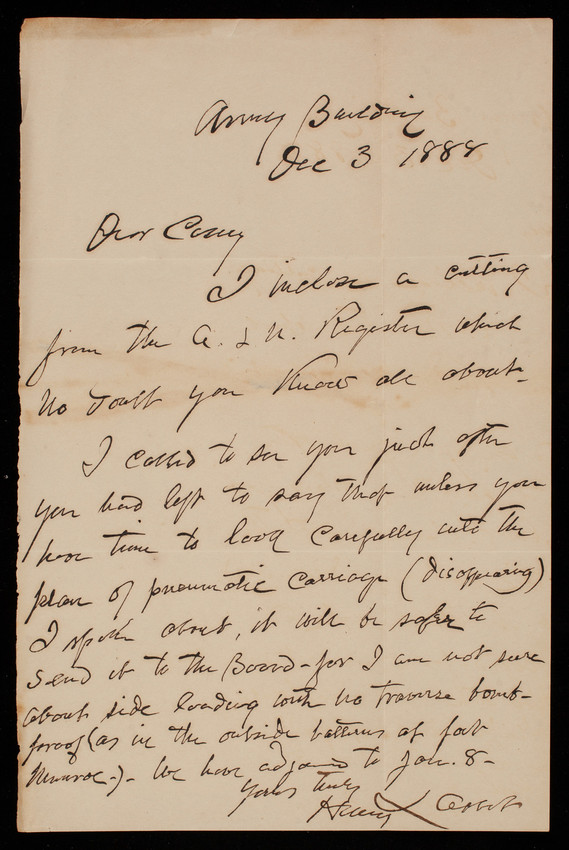 Army Building
Dec 3 1888
Dear Casey
I inclose a cutting
from the A. & N. Register which
no doubt you know all about.
I called to see you just after
you had left to say that unless you
have time to look carefully into the
plan of pneumatic carriage (disappearing)
I spoke about, it will be safer to
send it to the Board - for I am not sure
about side loading with no traverse bomb-
proof (as in the outside batteries at fort
Monroe -) - We have adjourned to Jan. 8 -
Yours truly
Henry L Abbot